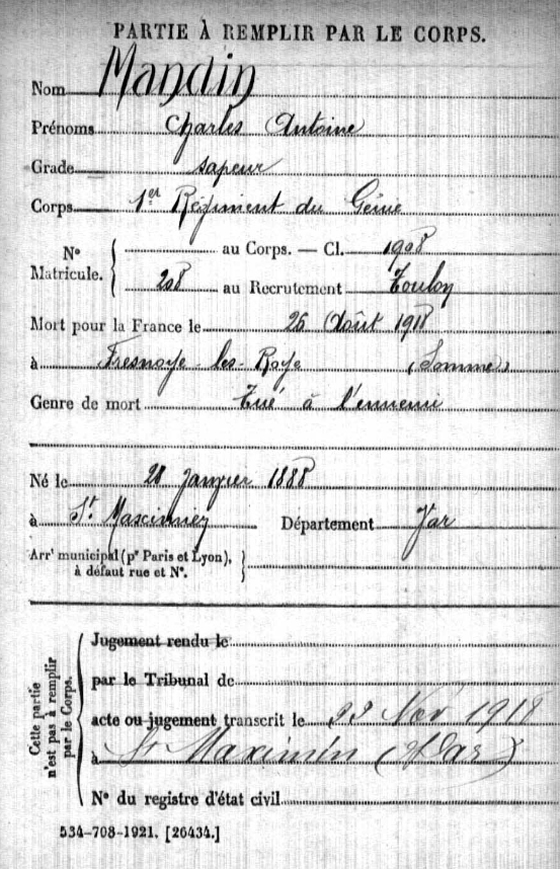 PARTIE À REMPLIR PAR LE CORPS.
Nom Mandin
Prénoms Charles Antoine
Grade sapeur
Corps 1er Régiment du Génie
No Matricule. { au Corps. — Cl. 1908
208 au Recrutement Toulon
Mort pour la France le 26 Août 1918
à Fresnoye-les-Roye (Somme)
Genre de mort Tué à l'ennemi
Né le 28 Janvier 1888
à St Département Var
Arrt municipal (pr Paris et Lyon), à défaut rue et No. }
Cette partie n'est pas à remplir par le Corps.
Jugement rendu le
par le Tribunal de
acte ou jugement transcrit le Nov 1918
à St Maximin (Var)
No du registre d'état civil
534-708-1921. [26434.]